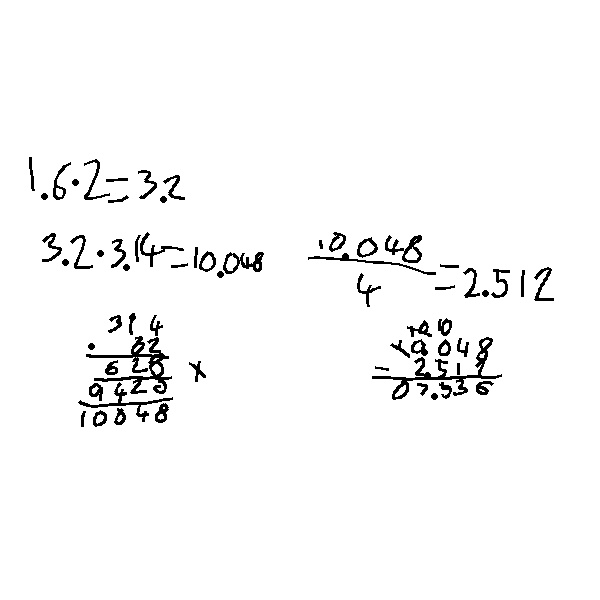 1.6·2=3.2
3.2·3.14=10.048
10.048/4=2.512
314
· 32
628
x
9420
10048
10 10
10.048
- 2.512
07.536